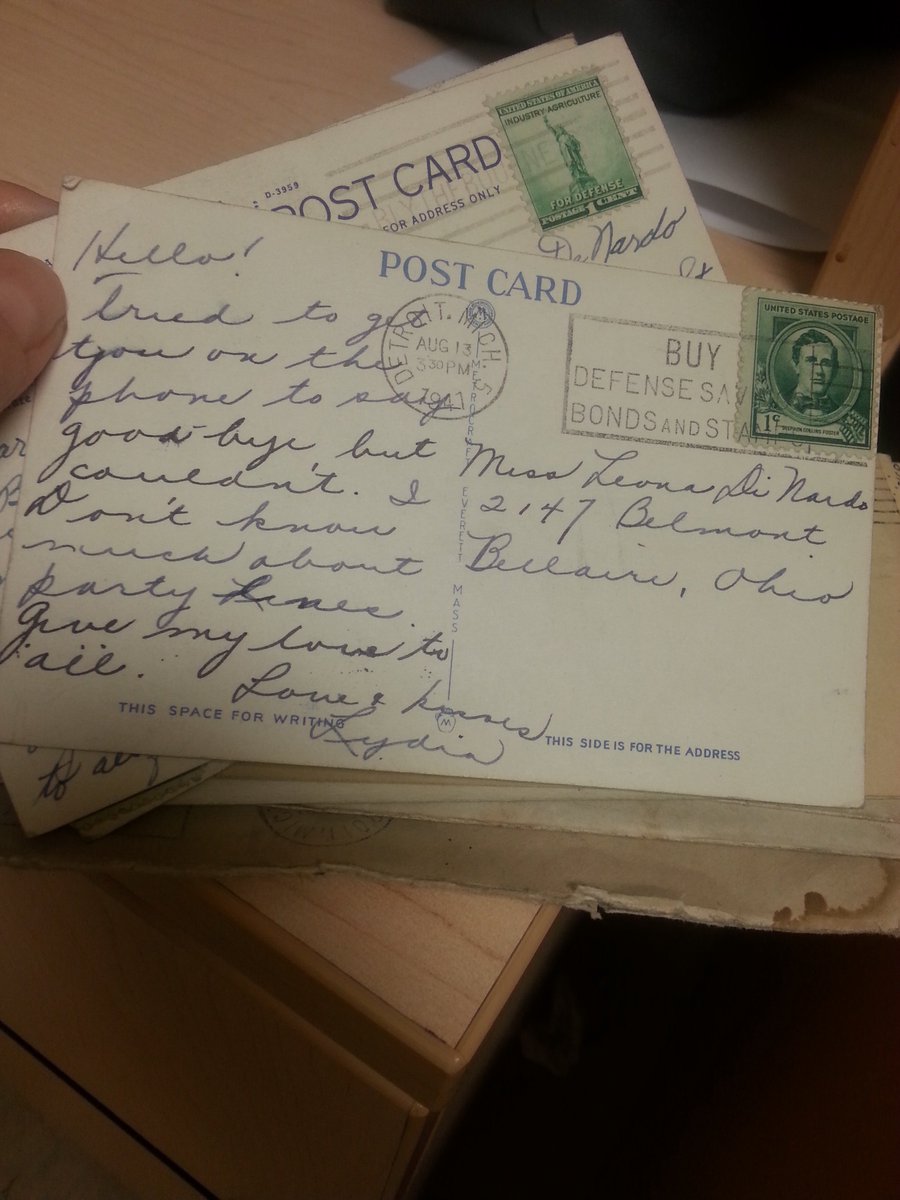 UNITED STATES OF AMERICA
INDUSTRY AGRICULTURE
FOR DEFENSE
POSTAGE 1 CENT
D-3959
POST CARD
FOR ADDRESS ONLY
Di Nardo
St
POST CARD
DETROIT, MICH. 5
AUG 13
330 PM
1941
BUY
DEFENSE SAV
BONDS AND STA
UNITED STATES POSTAGE
1¢
STEPHEN COLLINS FOSTER
Hello!
Tried to get
you on the
phone to say
good-bye, but
couldn't. I
Don't know
much about
party lines.
Give my love to
all.
Love & kisses
Lydia
Miss Leona Di Nardo
2147 Belmont
Bellaire, Ohio
METROCRAFT EVERETT MASS
THIS SPACE FOR WRITING
THIS SIDE IS FOR THE ADDRESS